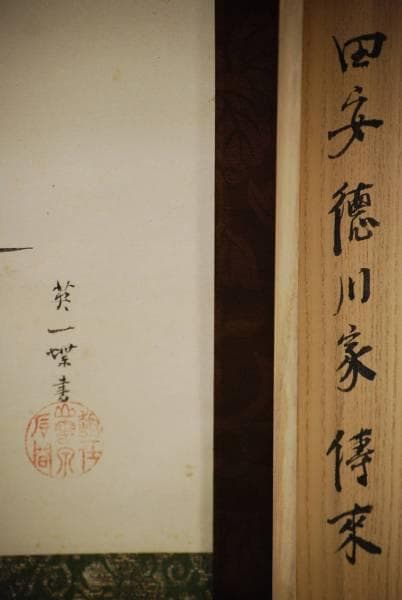 田安徳川家傳來
英一蝶書